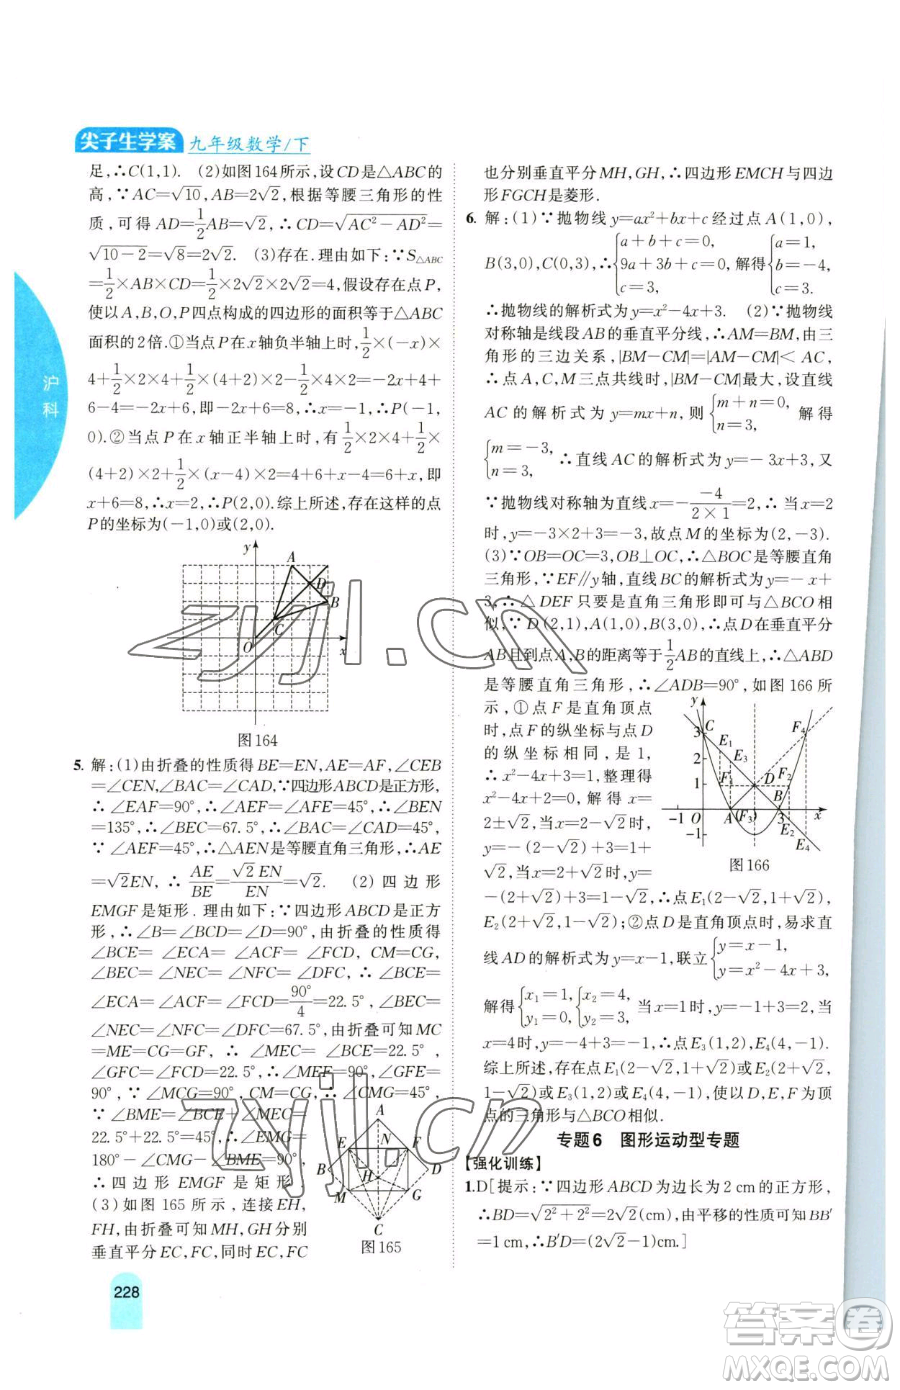 尖子生学案 九年级数学/下
足,∴C(1,1). (2)如图164所示,设CD是△ABC的
高,∵AC=√10,AB=2√2,根据等腰三角形的性
质,可得AD=1/2AB=√2,∴CD=√(AC²-AD²)=
√(10-2)=√8=2√2. (3)存在.理由如下:∵S△ABC
=1/2×AB×CD=1/2×2√2×2√2=4,假设存在点P,
使以A,B,O,P四点构成的四边形的面积等于△ABC
面积的2倍.①当点P在x轴负半轴上时,1/2×(-x)×
4+1/2×2×4+1/2×(4+2)×2-1/2×2×4=-2x+4+
6-4=-2x+6,即-2x+6=8,∴x=-1,∴P(-1,
0).②当点P在x轴正半轴上时,有1/2×2×4+1/2×
(4+2)×2+1/2×(x-4)×2=4+6+x-4=x+6,即
x+6=8,∴x=2,∴P(2,0).综上所述,存在这样的点
P的坐标为(-1,0)或(2,0).
y A D B C O x
图164
5. 解:(1)由折叠的性质得BE=EN,AE=AF,∠CEB
=∠CEN,∠BAC=∠CAD,∵四边形ABCD是正方形,
∴∠EAF=90°,∴∠AEF=∠AFE=45°,∴∠BEN
=135°,∴∠BEC=67.5°,∴∠BAC=∠CAD=45°,
∵∠AEF=45°,∴△AEN是等腰直角三角形,∴AE
=√2EN,∴AE/BE=√2EN/EN=√2. (2)四边形
EMGF是矩形.理由如下:∵四边形ABCD是正方
形,∴∠B=∠BCD=∠D=90°,由折叠的性质得
∠BCE=∠ECA=∠ACF=∠FCD, CM=CG,
∠BEC=∠NEC=∠NFC=∠DFC,∴∠BCE=
∠ECA=∠ACF=∠FCD=90°/4=22.5°,∠BEC=
∠NEC=∠NFC=∠DFC=67.5°,由折叠可知MC
=ME=CG=GF,∴∠MEC=∠BCE=22.5°,
∠GFC=∠FCD=22.5°,∴∠MEF=90°,∠GFE=
90°,∵∠MCG=90°,CM=CG,∴∠CMG=45°,
∵∠BME=∠BCE+∠MEC=22.5°+22.5°=45°,
∴∠EMG=
180°-∠CMG-∠BME=90°,
∴四边形EMGF是矩形.
(3)如图165所示,连接EH,
FH,由折叠可知MH,GH分别
垂直平分EC,FC,同时EC,FC
A E N F B D H M G C
图165
也分别垂直平分MH,GH,∴四边形EMCH与四边
形FGCH是菱形.
6. 解:(1)∵抛物线y=ax²+bx+c经过点A(1,0),
B(3,0),C(0,3),∴{a+b+c=0, 9a+3b+c=0, c=3, 解得{a=1, b=-4, c=3,
∴抛物线的解析式为y=x²-4x+3. (2)∵抛物线
对称轴是线段AB的垂直平分线,∴AM=BM,由三
角形的三边关系,|BM-CM|=|AM-CM|<AC,
∴点A,C,M三点共线时,|BM-CM|最大,设直线
AC的解析式为y=mx+n,则{m+n=0, n=3, 解得
{m=-3, n=3, ∴直线AC的解析式为y=-3x+3,又
∵抛物线对称轴为直线x=-(-4)/(2×1)=2,∴当x=2时,
y=-3×2+3=-3,故点M的坐标为(2,-3).
(3)∵OB=OC=3,OB⊥OC,∴△BOC是等腰直角
三角形,∵EF∥y轴,直线BC的解析式为y=-x+
3,∴△DEF只要是直角三角形即可与△BCO相
似.∵D(2,1),A(1,0),B(3,0),∴点D在垂直平分
AB且到点AB的距离等于1/2AB的直线上,∴△ABD
是等腰直角三角形,∴∠ADB=90°,如图166所
示,①点F是直角顶点
时,点F的纵坐标与点D
的纵坐标相同,是1,
∴x²-4x+3=1,整理得
x²-4x+2=0,解得x=
2±√2,当x=2-√2时,
y=-(2-√2)+3=
1+√2,当x=2+√2时,y=
-(2+√2)+3=1-√2,∴点E₁(2-√2,1+√2),
E₂(2+√2,1-√2);②点D是直角顶点时,易求直
线AD的解析式为y=x-1,联立{y=x-1, y=x²-4x+3,
解得{x₁=1, y₁=0, {x₂=4, y₂=3, 当x=1时,y=-1+3=2,当
x=4时,y=-4+3=-1,∴点E₃(1,2),E₄(4,-1).
综上所述,存在点E₁(2-√2,1+√2)或E₂(2+√2,1-
√2)或E₃(1,2)或E₄(4,-1),使以D,E,F为顶点
的三角形与△BCO相似.
y 3 2 1 -1 -1 O C E₁ E₃ F₁ D F₂ F₄ A (F₃) B 3 E₂ E₄ x
图166
专题6 图形运动型专题
【强化训练】
1.D[提示:∵四边形ABCD为边长为2 cm的正方形,
∴BD=√(2²+2²)=2√2(cm),由平移的性质可知BB′
=1 cm,∴B′D=(2√2-1)cm.]
沪科
228
zyjl.cn
zyjl.cn
答案圈
MXQE.COM